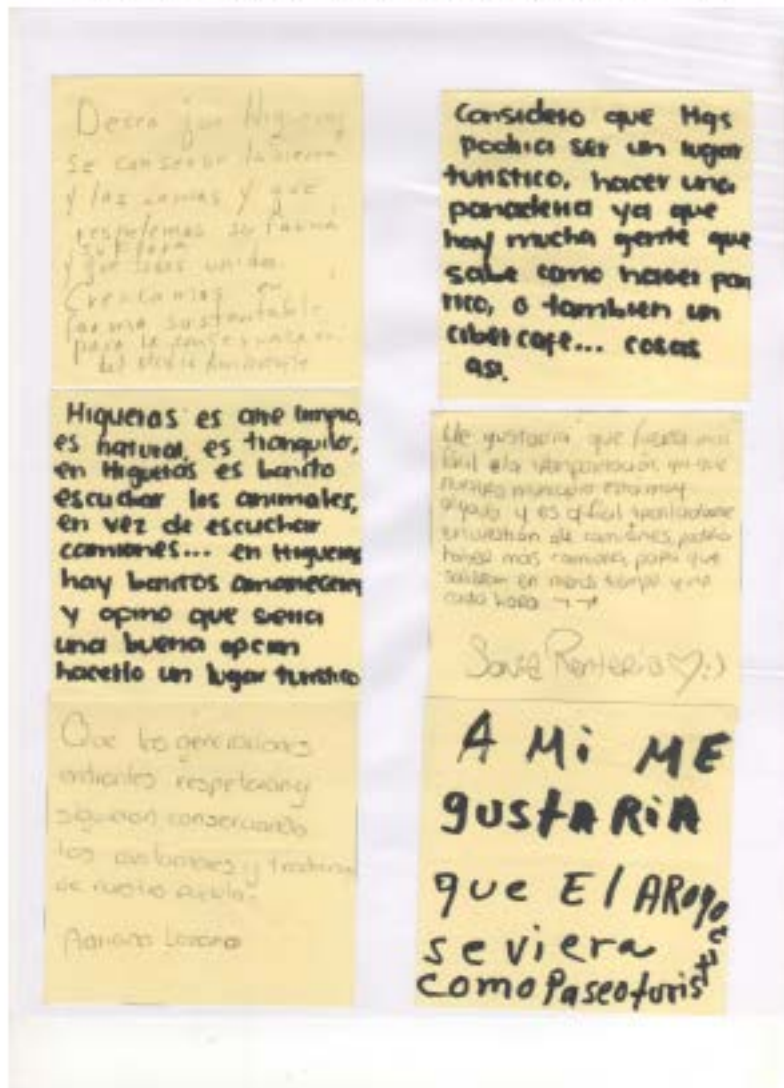 Deseo que Higueras
se conserve la sierra
y las lomas y que
respetemos su fauna
su flora
y que seas unida.
Crezcamos
forma sustentable
para la conservación
del Medio Ambiente
Higueras es aire limpio,
es natural, es tranquilo,
en Higueras es bonito
escuchar los animales,
en vez de escuchar
camiones... en Higueras
hay bonitos amaneceres
y opino que seria
una buena opcion
hacerlo un lugar turistico
Que las generaciones
entrantes respetaran y
siguieran conservando
las costumbres y tradiciones
de nuestro pueblo.
Adriana Lozano
Considero que Hgs
podria ser un lugar
turistico, hacer una
panaderia ya que
hay mucha gente que
sabe como hacer pan
rico, o tambien un
ciber cafe... cosas
asi.
Me gustaria que fuera mas
facil la transportación ya que
nuestro municipio esta muy
alejado y es dificil trasladarse
en cuestión de camiones, podria
haber más camiones para que
salieran en menos tiempo y no
cada hora
Renteria ♡:)
A Mi ME
gustARiA
que El ARoyo
se viera
como Paseo turistco